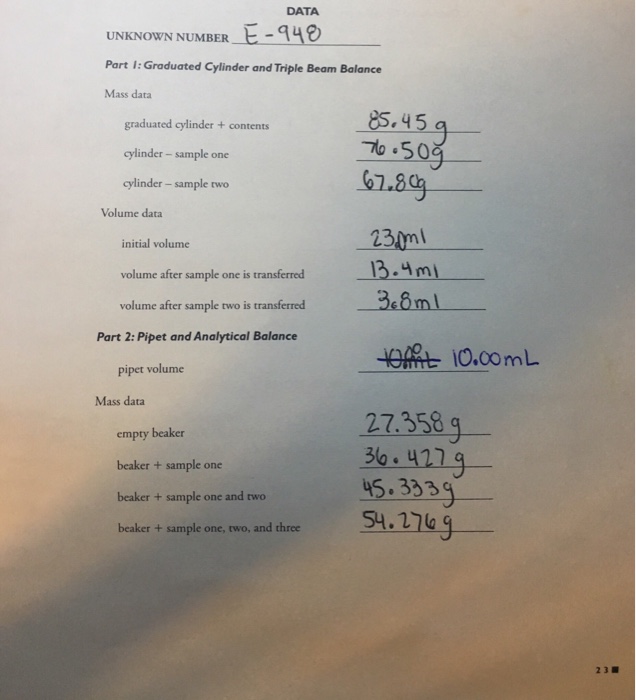 DATA
UNKNOWN NUMBER E-948
Part 1: Graduated Cylinder and Triple Beam Balance
Mass data
graduated cylinder + contents 85.45 g
cylinder – sample one 76.50g
cylinder – sample two 67.80g
Volume data
initial volume 23.0ml
volume after sample one is transferred 13.4ml
volume after sample two is transferred 3.8ml
Part 2: Pipet and Analytical Balance
pipet volume 10.00mL
Mass data
empty beaker 27.358 g
beaker + sample one 36.427 g
beaker + sample one and two 45.333g
beaker + sample one, two, and three 54.276 g
23